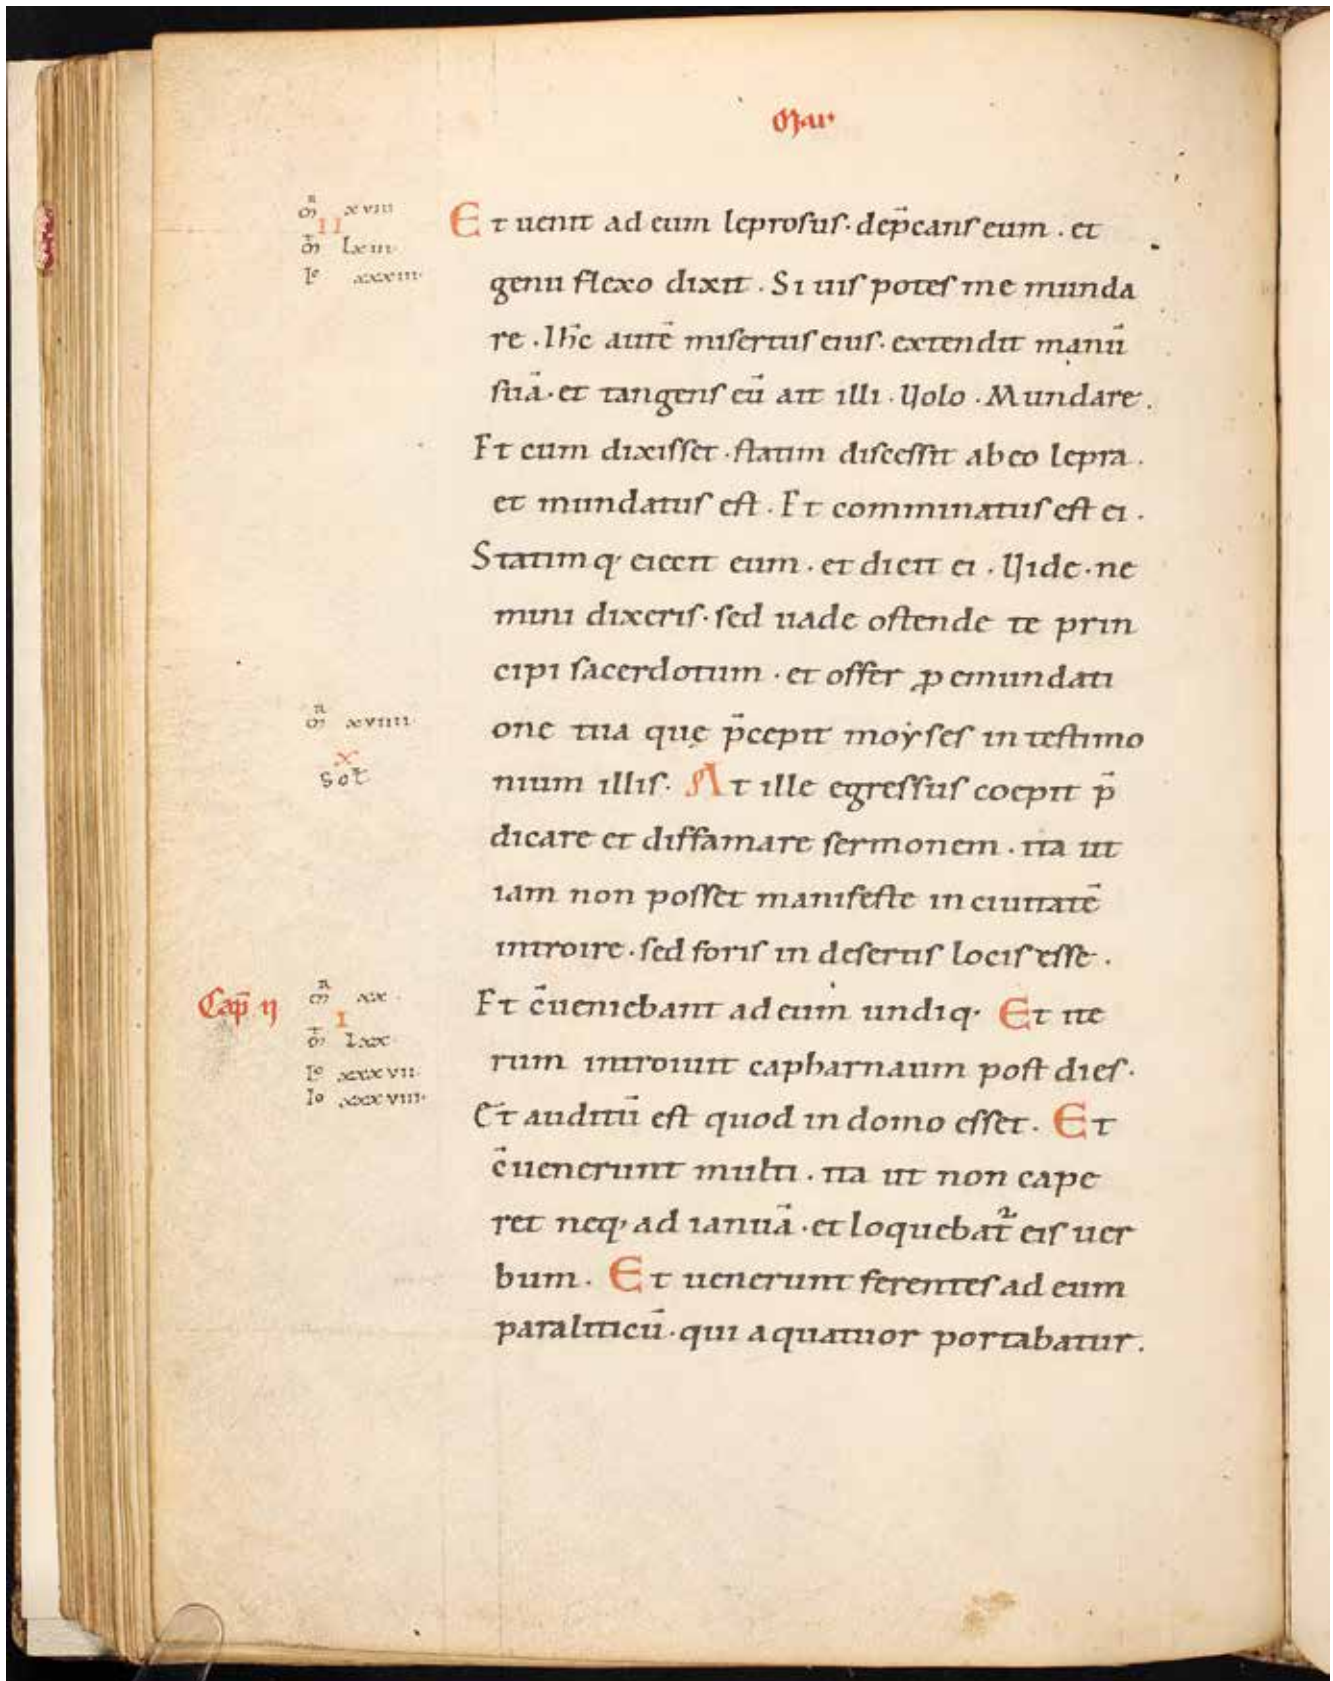 Mar
mͬ xviii
II
mͭ lxiii
lͦ xxxiii
Et uenit ad eum leprosus· dep̄cans eum · et
genu flexo dixit · Si uis potes me munda
re · Ih̄c autē misertus eius· extendit manū
suā· et tangens eū ait illi · Uolo · Mundare ·
Et cum dixisset · statim discessit ab eo lepra ·
et mundatus est · Et comminatus est ei ·
Statimq· eiecit eum · et dicit ei · Uide · ne
mini dixeris· sed uade ostende te prin
cipi sacerdotum · et offer ꝓ emundati
one tua quę p̄cepit moẏses in testimo
nium illis· At ille egressus coepit p̄
dicare et diffamare sermonem · ita ut
iam non posset manifeste in ciuitatē
introire · sed foris in desertis locis esse ·
Et c̄ueniebant ad eum undiq· Et ite
rum introiuit capharnaum post dies·
Et auditū est quod in domo esset · Et
c̄uenerunt multi · ita ut non cape
ret neq· ad ianuā · et loquebat᷑ eis uer
bum · Et uenerunt ferentes ad eum
paraliticū · qui a quatuor portabatur ·
xviiii
x
Sol̄
Cap̄ ii
xx
I
lxx
lͦ xxxvii
Io xxxviii